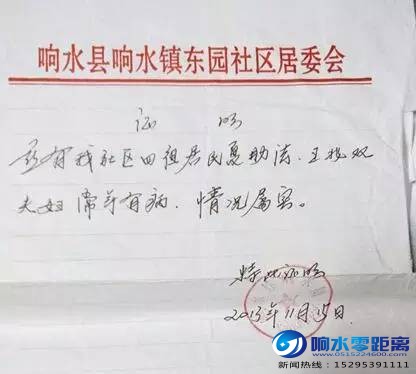 响水县响水镇东园社区居委会
证 明
兹有我社区四组居民夏助法、王抛双
夫妇常年有病、情况属实。
特此证明
2013年11月15日
响水零距离
www.0515224600.com
新闻热线：15295391111